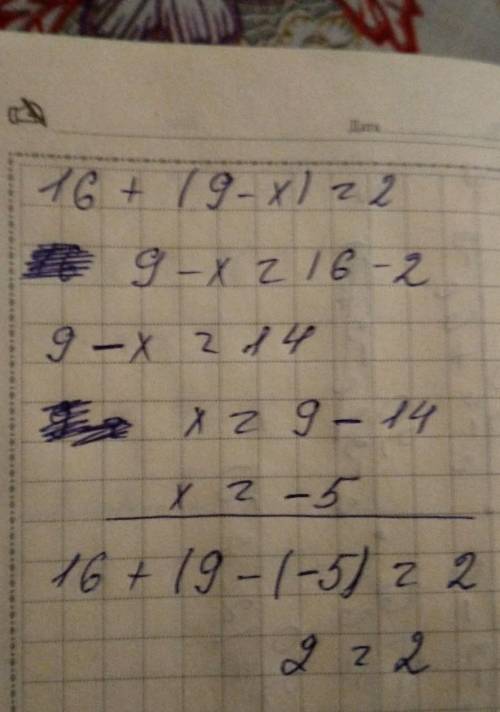 Дата
16 + (9 - x) = 2
9 - x = 16 - 2
9 - x = 14
x = 9 - 14
x = -5
16 + (9 - (-5) = 2
2 = 2